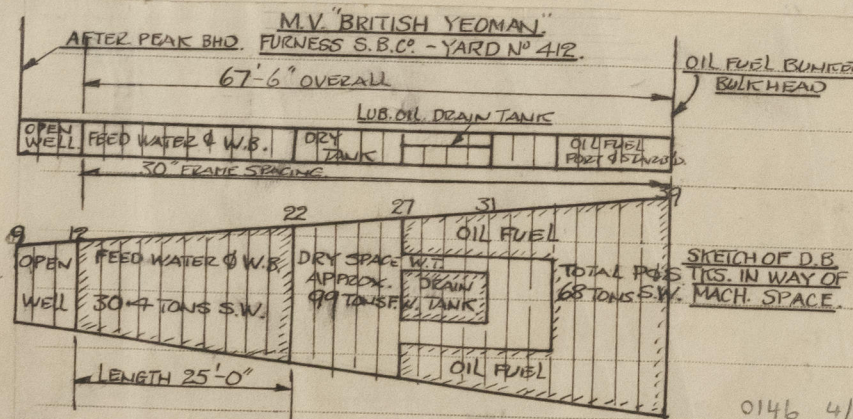 M.V. "BRITISH YEOMAN"
AFTER PEAK BHD. FURNESS S.B.Cº. - YARD Nº 412.
67'-6" OVERALL
OIL FUEL BUNKER
BULKHEAD
LUB. OIL. DRAIN TANK
OPEN
WELL
FEED WATER & W.B.
DRY
TANK
OIL FUEL
PORT & STARB'D.
30" FRAME SPACING.
9 12 22 27 31 39
OIL FUEL
OPEN
WELL
FEED WATER & W.B.
30.4 TONS S.W.
DRY SPACE
APPROX.
99 TONS F.W.
W.T.
DRAIN
TANK
TOTAL P & S
68 TONS S.W.
SKETCH OF D.B.
TKS. IN WAY OF
MACH. SPACE.
OIL FUEL
LENGTH 25'-0"
0146 4/